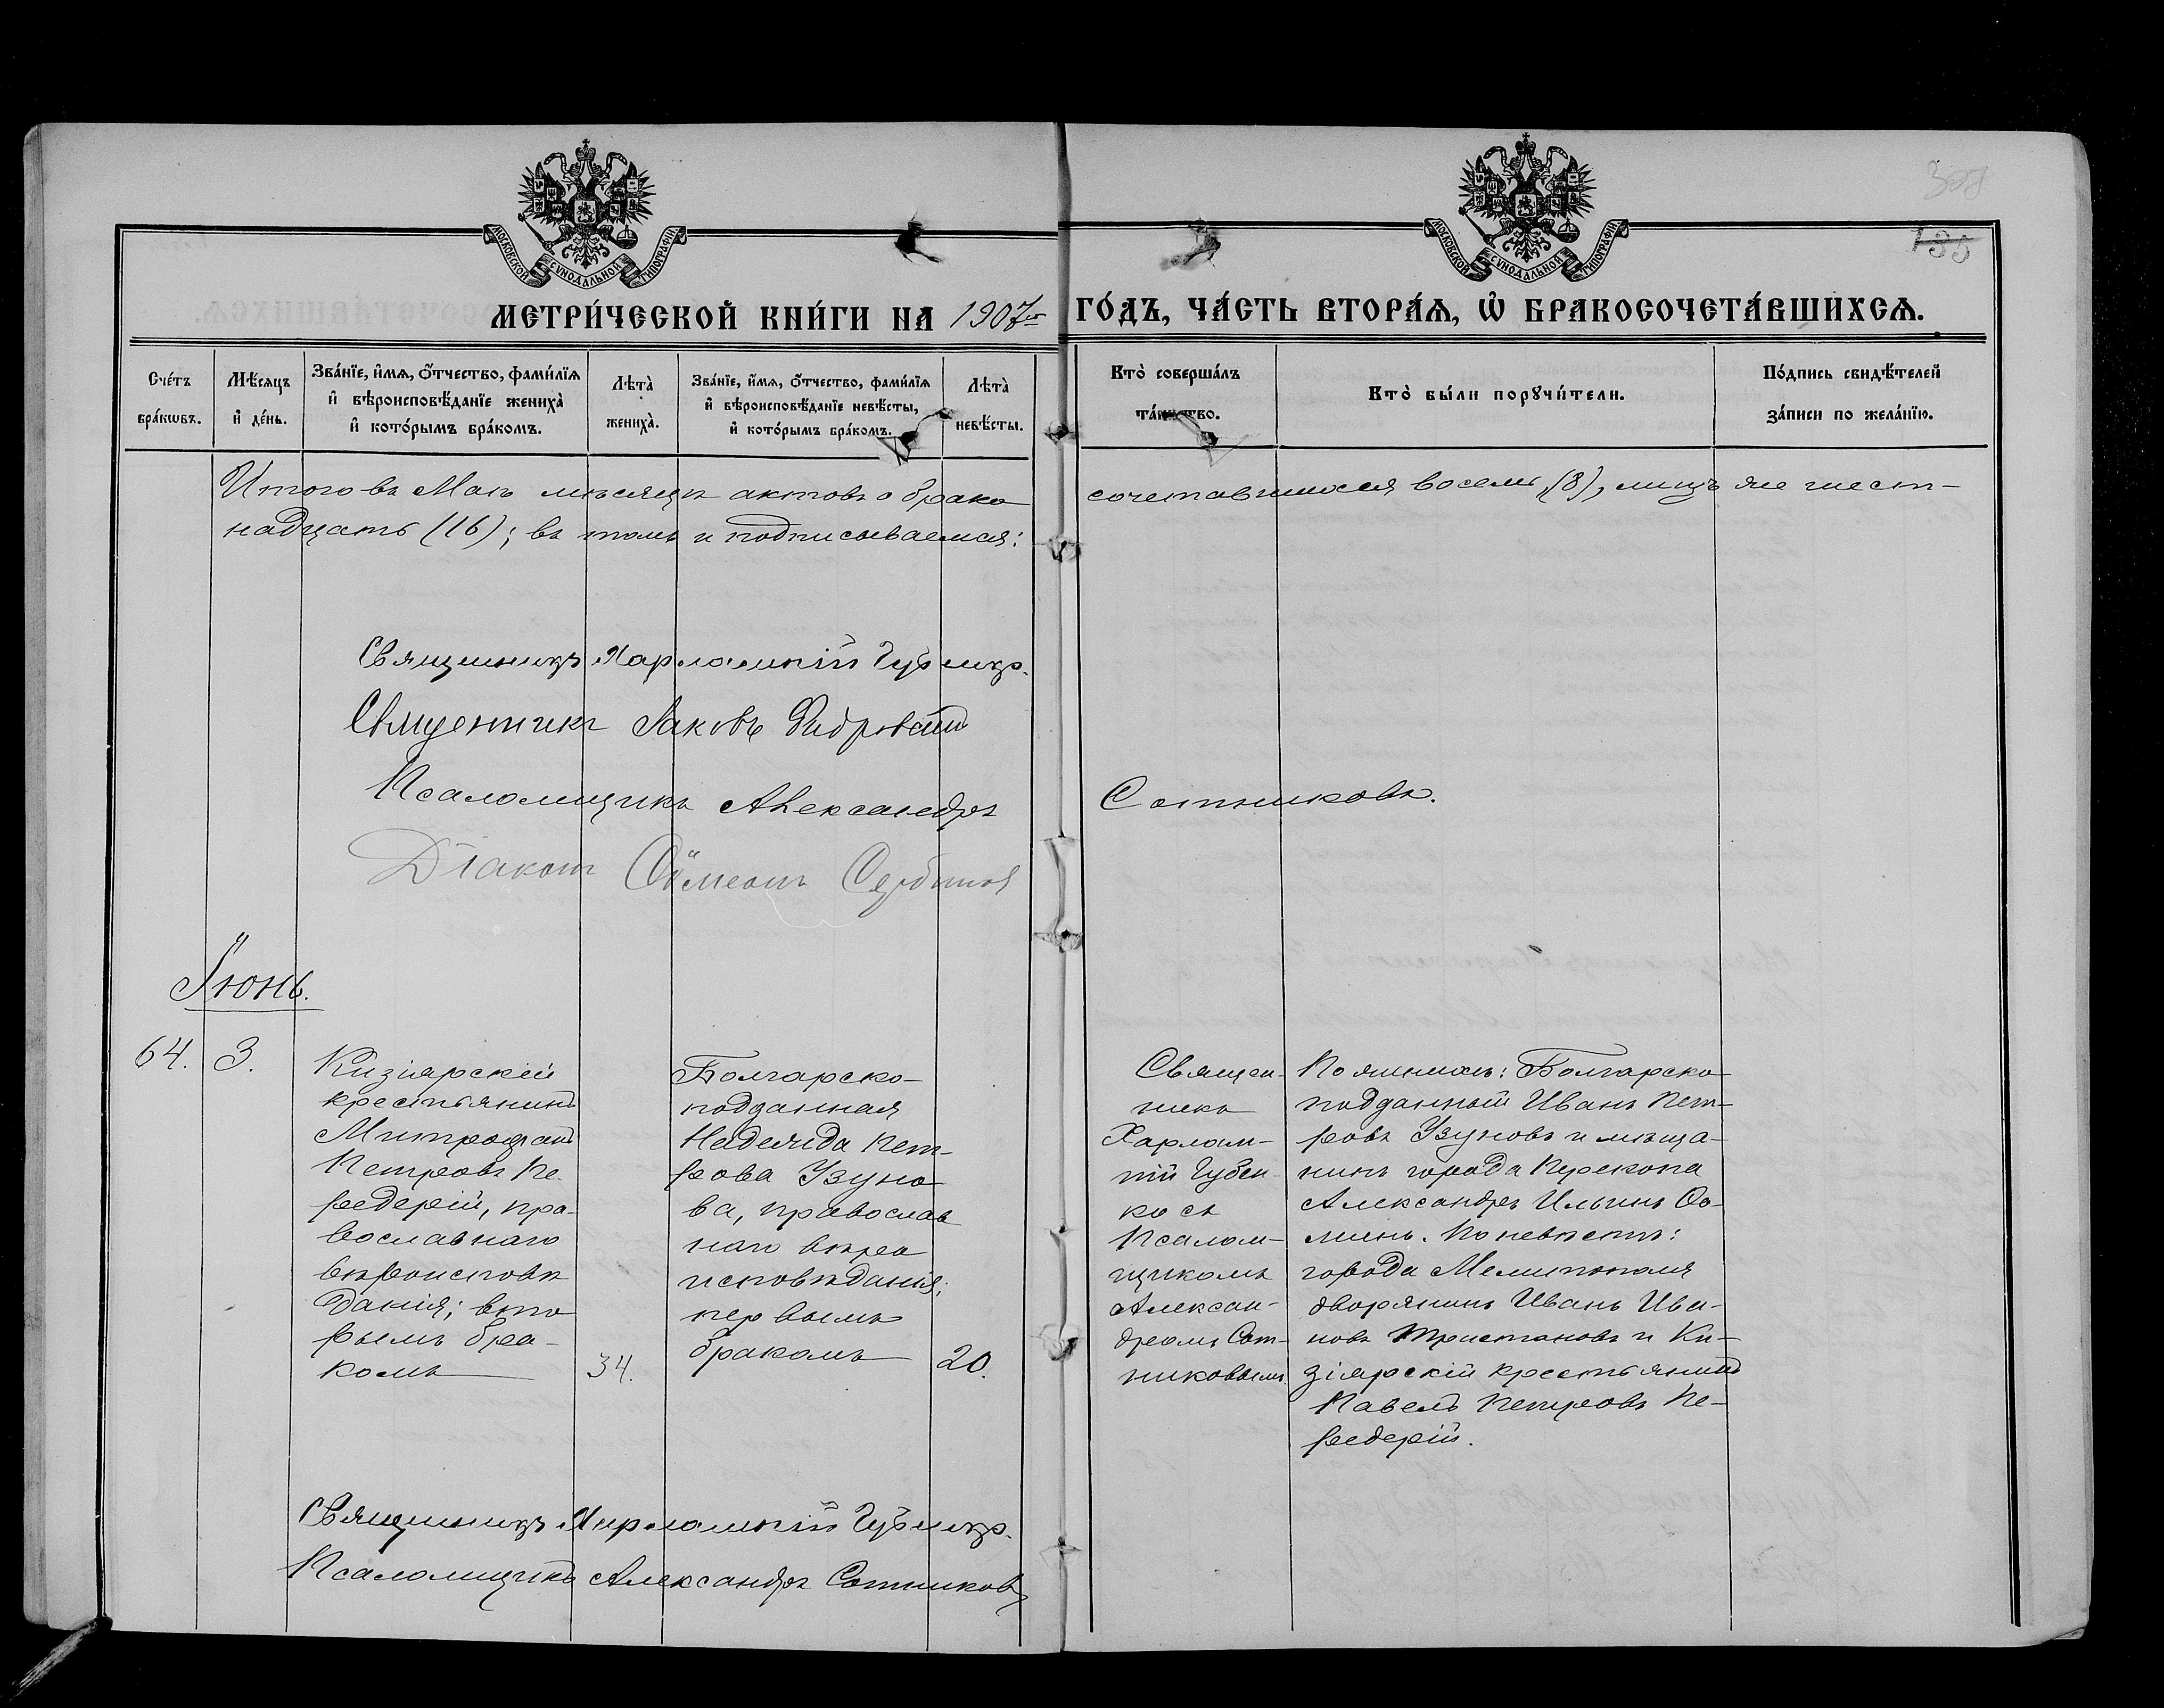 308
135
МОСКОВСКОЙ СѴНОДАЛЬНОЙ ТИПОГРАФІИ
МОСКОВСКОЙ СѴНОДАЛЬНОЙ ТИПОГРАФІИ
МЕТРИ́ЧЕСКОЙ КНИ́ГИ НА 1907 ГО́ДЪ, ЧА́СТЬ ВТОРА́Ѧ, Ѡ҆ БРАКОСОЧЕТА́ВШИХСѦ.
Сче́тъ
бра́кѡвъ.
Мѣ́сяцъ
и҆ де́нь.
Зва́нїе, и҆́мѧ, ѻ҆́тчество, фами́лїѧ
и҆ вѣроисповѣ́данїе жениха̀
и҆ кото́рымъ бра́комъ.
Лѣта̀
жениха̀.
Зва́нїе, и҆́мѧ, ѻ҆́тчество, фами́лїѧ
и҆ вѣроисповѣ́данїе невѣ́сты,
и҆ кото́рымъ бра́комъ.
Лѣта̀
невѣ́сты.
Кто̀ соверша́лъ
та́инство.
Кто̀ бы́ли порꙋчи́тели.
По́дпись свидѣ́телей
за́писи по жела́нїю.
Итого въ Маѣ мѣсяцѣ актовъ о брако
сочетавшихся восемь (8), лицъ же шест-
надцать (16); въ томъ и подписываемся:
Священникъ Харлампій Губенко.
Священникъ Іаковъ
Псаломщикъ Александръ Сотниковъ.
Діаконъ Сѵмеонъ Сербиновъ
Іюнь.
64.
3.
Кизіярскій
крестьянинъ
Митрофанъ
Петровъ Пе-
редерій, пра-
вославнаго
вѣроисповѣ
данія; вто
рымъ бра-
комъ
34.
Болгарско-
подданная
Надежда Пет-
рова Узуно
ва, православ
наго вѣро
исповѣданія;
первымъ
бракомъ
20.
Священ-
никъ
Харлам-
пій Губен-
ко съ
Псалом-
щикомъ
Алексан-
дромъ Сот-
никовымъ.
По женихѣ: Болгарско
подданный Иванъ Пет-
ровъ Узуновъ и мѣща-
нинъ города Перекопа
Александръ Ильинъ Ѳо-
минъ. По невѣстѣ:
города Мелитополя
дворянинъ Иванъ Ива-
новъ Тристановъ и Ки-
зіярскій крестьянинъ
Павелъ Петровъ Пе-
редерій.
Священникъ Харлампій Губенко.
Псаломщикъ Александръ Сотниковъ